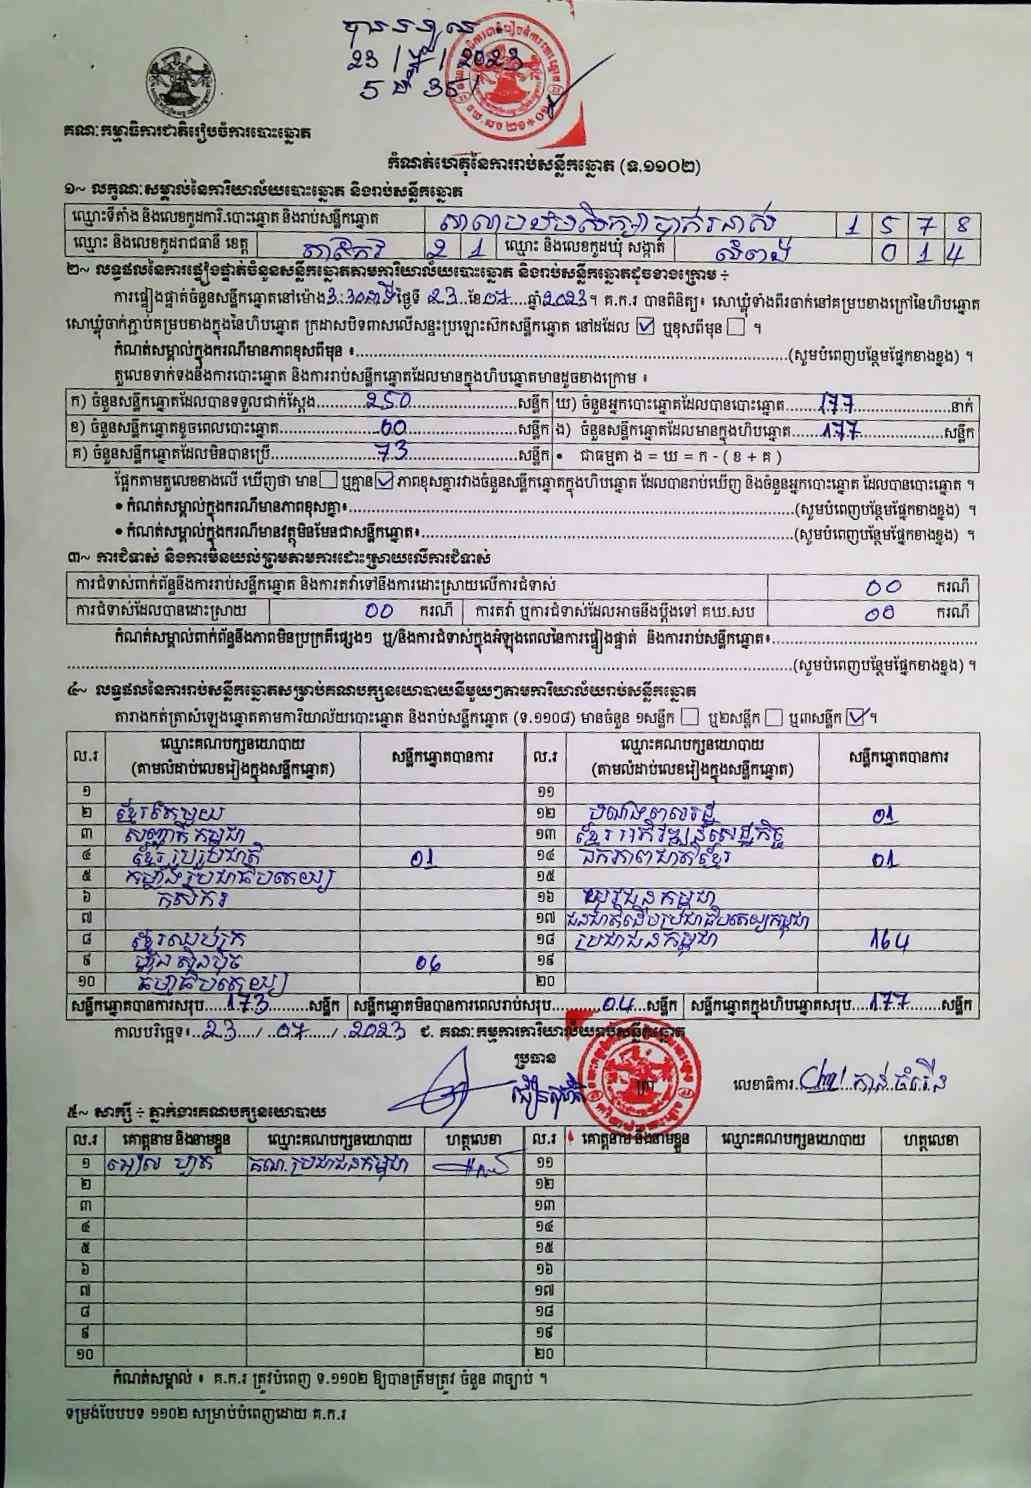 បានទទួល
23 / 7 / 2023
គណៈកម្មាធិការជាតិរៀបចំការបោះឆ្នោត
កំណត់ហេតុនៃការរាប់សន្លឹកឆ្នោត (ទ.១១០២)
១~ លក្ខណៈសម្គាល់នៃការិយាល័យបោះឆ្នោត និងរាប់សន្លឹកឆ្នោត
ឈ្មោះទីតាំង និងលេខកូដការិ.បោះឆ្នោត និងរាប់សន្លឹកឆ្នោត 1 5 7 8
ឈ្មោះ និងលេខកូដរាជធានី ខេត្ត តាកែវ 2 1 ឈ្មោះ និងលេខកូដឃុំ សង្កាត់ 0 1 4
២~ លទ្ធផលនៃការផ្ទៀងផ្ទាត់ចំនួនសន្លឹកឆ្នោតតាមការិយាល័យបោះឆ្នោត និងរាប់សន្លឹកឆ្នោតដូចខាងក្រោម ÷
ការផ្ទៀងផ្ទាត់ចំនួនសន្លឹកឆ្នោតនៅម៉ោង 3:30នាទី ថ្ងៃទី 23 ខែ 07 ឆ្នាំ 2023 ។ គ.ក.រ បានពិនិត្យ៖ សោឃ្លុំទាំងពីរចាក់នៅគម្របខាងក្រៅនៃហិបឆ្នោត
សោឃ្លុំចាក់ភ្ជាប់គម្របខាងក្នុងនៃហិបឆ្នោត ក្រដាសបិទពាសលើសន្ទះប្រឡោះស៊កសន្លឹកឆ្នោត នៅដដែល ☑ ឬខុសពីមុន ☐ ។
កំណត់សម្គាល់ក្នុងករណីមានភាពខុសពីមុន ៖ (សូមបំពេញបន្ថែមផ្នែកខាងខ្នង) ។
តួលេខទាក់ទងនឹងការបោះឆ្នោត និងការរាប់សន្លឹកឆ្នោតដែលមានក្នុងហិបឆ្នោតមានដូចខាងក្រោម ៖
ក) ចំនួនសន្លឹកឆ្នោតដែលបានទទួលជាក់ស្តែង 250 សន្លឹក ឃ) ចំនួនអ្នកបោះឆ្នោតដែលបានបោះឆ្នោត 177 នាក់
ខ) ចំនួនសន្លឹកឆ្នោតខូចពេលបោះឆ្នោត 00 សន្លឹក ង) ចំនួនសន្លឹកឆ្នោតដែលមានក្នុងហិបឆ្នោត 177 សន្លឹក
គ) ចំនួនសន្លឹកឆ្នោតដែលមិនបានប្រើ 73 សន្លឹក • ជាធម្មតា ង = ឃ = ក - ( ខ + គ )
ផ្អែកតាមតួលេខខាងលើ ឃើញថា មាន ☐ ឬគ្មាន ☑ ភាពខុសគ្នារវាងចំនួនសន្លឹកឆ្នោតក្នុងហិបឆ្នោត ដែលបានរាប់ឃើញ និងចំនួនអ្នកបោះឆ្នោត ដែលបានបោះឆ្នោត ។
• កំណត់សម្គាល់ក្នុងករណីមានភាពខុសគ្នា៖ (សូមបំពេញបន្ថែមផ្នែកខាងខ្នង) ។
• កំណត់សម្គាល់ក្នុងករណីមានវត្ថុមិនមែនជាសន្លឹកឆ្នោត៖ (សូមបំពេញបន្ថែមផ្នែកខាងខ្នង) ។
៣~ ការជំទាស់ និងការមិនយល់ព្រមតាមការដោះស្រាយលើការជំទាស់
ការជំទាស់ពាក់ព័ន្ធនឹងការរាប់សន្លឹកឆ្នោត និងការតវ៉ាទៅនឹងការដោះស្រាយលើការជំទាស់ 00 ករណី
ការជំទាស់ដែលបានដោះស្រាយ 00 ករណី ការតវ៉ា ឬការជំទាស់ដែលអាចនឹងប្តឹងទៅ គឃ.សប 00 ករណី
កំណត់សម្គាល់ពាក់ព័ន្ធនឹងភាពមិនប្រក្រតីផ្សេងៗ ឬ/និងការជំទាស់ក្នុងអំឡុងពេលនៃការផ្ទៀងផ្ទាត់ និងការរាប់សន្លឹកឆ្នោត៖
(សូមបំពេញបន្ថែមផ្នែកខាងខ្នង) ។
៤~ លទ្ធផលនៃការរាប់សន្លឹកឆ្នោតសម្រាប់គណបក្សនយោបាយនីមួយៗតាមការិយាល័យរាប់សន្លឹកឆ្នោត
តារាងកត់ត្រាសំឡេងឆ្នោតតាមការិយាល័យបោះឆ្នោត និងរាប់សន្លឹកឆ្នោត (ទ.១១០៨) មានចំនួន ១សន្លឹក ☐ ឬ២សន្លឹក ☐ ឬ៣សន្លឹក ☑ ។
ល.រ ឈ្មោះគណបក្សនយោបាយ (តាមលំដាប់លេខរៀងក្នុងសន្លឹកឆ្នោត) សន្លឹកឆ្នោតបានការ ល.រ ឈ្មោះគណបក្សនយោបាយ (តាមលំដាប់លេខរៀងក្នុងសន្លឹកឆ្នោត) សន្លឹកឆ្នោតបានការ
១ ១១
២ ខ្មែរតែមួយ ១២ 01
៣ សញ្ជាតិកម្ពុជា ១៣ ខ្មែរអភិវឌ្ឍន៍សេដ្ឋកិច្ច
៤ ខ្មែររួបរួមជាតិ 01 ១៤ ឯកភាពជាតិខ្មែរ 01
៥ កម្លាំងប្រជាធិបតេយ្យ ១៥
៦ កសិករ ១៦ យុវជនកម្ពុជា
៧ ១៧ ជនជាតិដើមប្រជាធិបតេយ្យកម្ពុជា
៨ ខ្មែរឈប់ក្រ ១៨ ប្រជាជនកម្ពុជា 164
៩ ហ៊្វុនស៊ិនប៉ិច 06 ១៩
១០ ធម្មាធិបតេយ្យ ២០
សន្លឹកឆ្នោតបានការសរុប 173 សន្លឹក សន្លឹកឆ្នោតមិនបានការពេលរាប់សរុប 04 សន្លឹក សន្លឹកឆ្នោតក្នុងហិបឆ្នោតសរុប 177 សន្លឹក
កាលបរិច្ឆេទ៖ 23 / 07 / 2023 ជ. គណៈកម្មការការិយាល័យរាប់សន្លឹកឆ្នោត
ប្រធាន
លេខាធិការ
៥~ សាក្សី ÷ ភ្នាក់ងារគណបក្សនយោបាយ
ល.រ គោត្តនាម និងនាមខ្លួន ឈ្មោះគណបក្សនយោបាយ ហត្ថលេខា ល.រ គោត្តនាម និងនាមខ្លួន ឈ្មោះគណបក្សនយោបាយ ហត្ថលេខា
១ គណ.ប្រជាជនកម្ពុជា ១១
២ ១២
៣ ១៣
៤ ១៤
៥ ១៥
៦ ១៦
៧ ១៧
៨ ១៨
៩ ១៩
១០ ២០
កំណត់សម្គាល់ ៖ គ.ក.រ ត្រូវបំពេញ ទ.១១០២ ឱ្យបានត្រឹមត្រូវ ចំនួន ៣ច្បាប់ ។
ទម្រង់បែបបទ ១១០២ សម្រាប់បំពេញដោយ គ.ក.រ